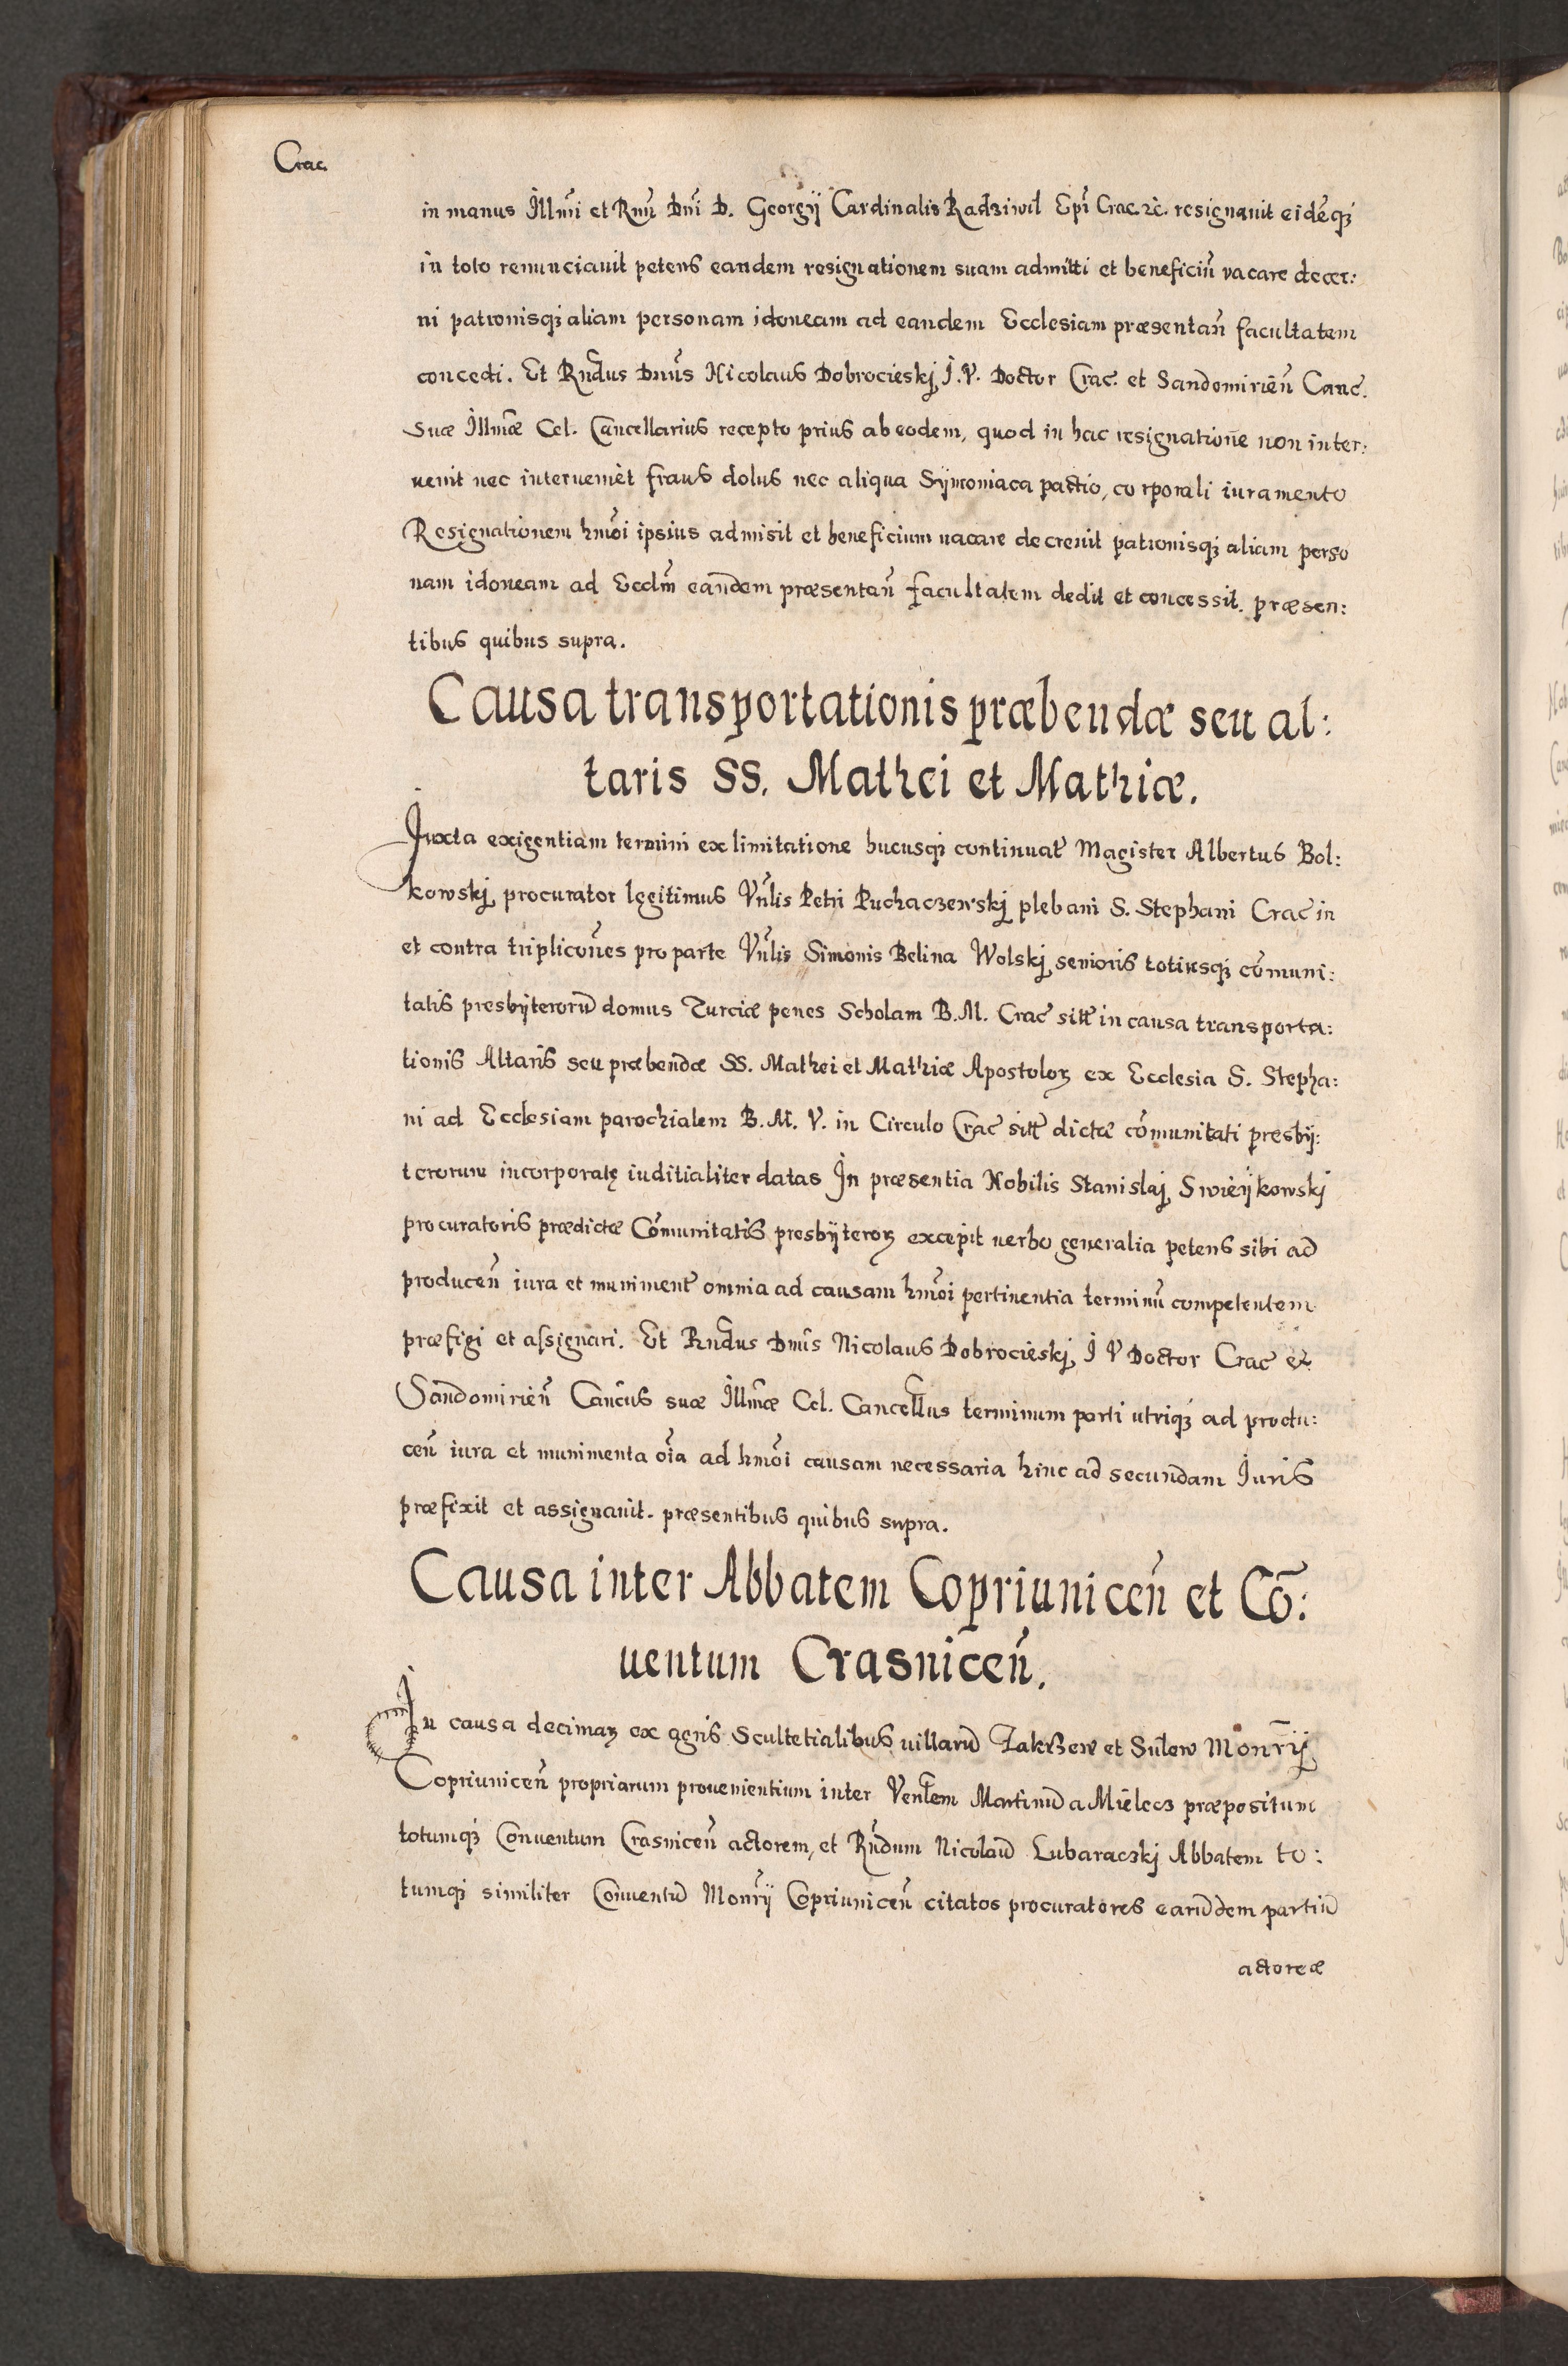 Crac.
in manus Illm̃i et Rm̃i Dn̄i D. Georgij Cardinalis Radziwil Epĩ Crac. ꝛc̃. resignauit eidẽqꝫ
in toto renunciauit petens eandem resignationem suam admitti et beneficiũ vacare decer:
ni patronisqꝫ aliam personam idoneam ad eandem Ecclesiam præsentañ facultatem
concedi. Et Rñdus Dnũs Nicolaus Dobrocieskj I. V. Doctor Crac. et Sandomirieñ Canc.
Suæ Illm̃æ Cel. Cancellarius recepto prius ab eodem, quod in hac resignatiõne non inter:
uenit nec interueniet fraus dolus nec aliqua Sijmoniaca pactio, corporali iuramento
Resignationem hmõi ipsius admisit et beneficium uacare decreuit patronisqꝫ aliam perso
nam idoneam ad Eccłm̃ eandem præsentañ facultatem dedit et concessit. præsen:
tibus quibus supra.
Causa transportationis præbendæ seu al:
taris SS. Mathei et Mathiæ.
Juxta exigentiam termini ex limitatione hucusqꝫ continuat̃ Magister Albertus Bol:
kowskj procurator legitimus Vñlis Petri Puchaczewskj plebani S. Stephani Crac̃ in
et contra triplicoñes pro parte Vñlis Simonis Belina Wolskj senioris totiusqꝫ cõmuni:
tatis presbijterorũ domus Turciæ penes Scholam B. M. Crac̃ sitæ in causa transporta:
tionis Altaris seu præbendæ SS. Mathei et Mathiæ Apostoloꝝ ex Ecclesia S. Stepha:
ni ad Ecclesiam parochialem B. M. V. in Circulo Crac̃ sitt̃ dictæ cõmunitati presbij:
terorum incorporatę iuditialiter datas In præsentia Nobilis Stanislaj Swieijkowskj
procuratoris prædictæ Cõmunitatis presbijteroꝝ excepit uerbo generalia petens sibi ad
produceñ iura et muniment̃ omnia ad causam hmõi pertinentia terminũ competentem
præfigi et assignari. Et Rñdus Dnũs Nicolaus Dobrocieskj I V Doctor Crac̃ et
Sandomirieñ Cañcus suæ Illm̃æ Cel. Cancellus terminum parti utriqꝫ ad produ:
ceñ iura et munimenta oĩa ad hmõi causam necessaria hinc ad secundam Iuris
præfixit et assignauit. præsentibus quibus supra.
Causa inter Abbatem Copriuniceñ et Cõ:
uentum Crasniceñ.
In causa decimaꝝ ex agris Scultetialibus uillarũ Zakrzew et Sulew Monr̃ij
Copriuniceñ propriarum prouenientium inter Venlem Martinũ a Mielecz præpositum
totumqꝫ Conuentum Crasniceñ actorem, et Rñdum Nicolaũ Lubaraczkj Abbatem to:
tumqꝫ similiter Conuentũ Monr̃ij Copriuniceñ citatos procuratores earũdem partiũ
actoreæ